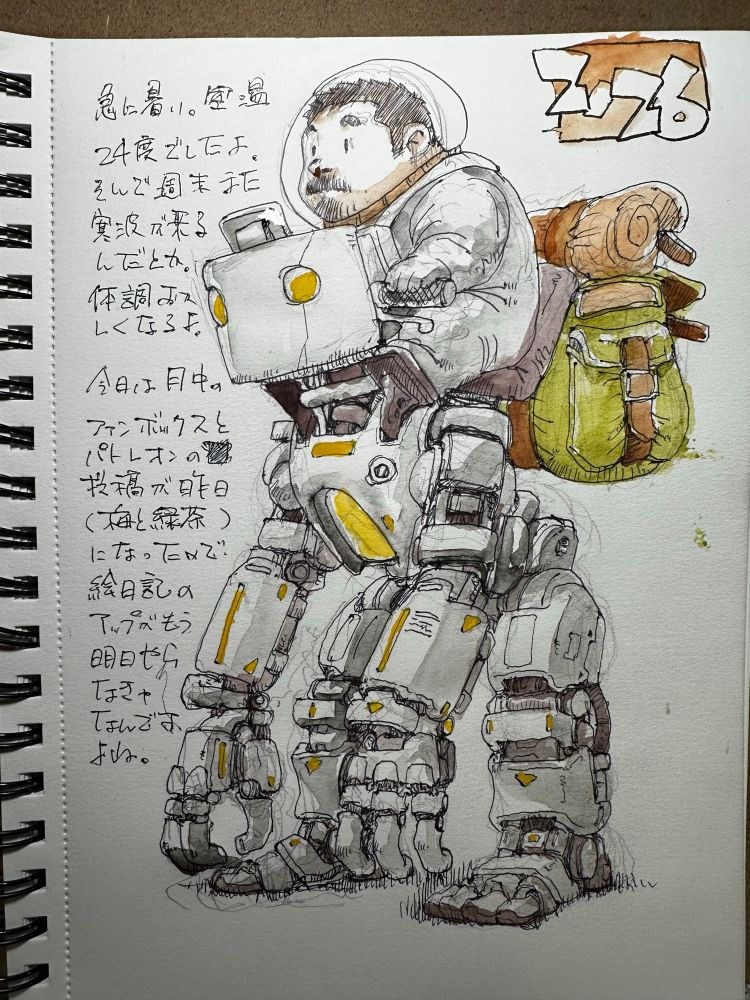 急に暑い。室温
24度でしたよ。
そんで週末また
寒波が来る
んだとか。
体調おか
しくなるよ。
今日は日中の
ファンボックスと
パトレオンの
投稿が昨日
(梅と緑茶)
になったので
絵日記の
アップがもう
明日やら
なきゃ
なんです
よね。
2026